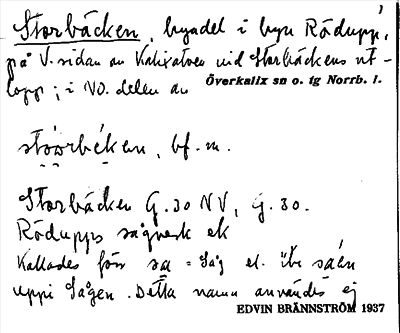 Storbäcken, byadel i byn Rödupp,
på V. sidan av Kalixälven vid Storbäckens ut-
lopp; i NO. delen av
Överkalix sn o. tg Norrb. l.
bf. m.
Storbäcken G. 30 NV, G. 30.
Rödupps sågverk ek
Kallades förr sa = Såg el.
uppi Sågen. Detta namn användes ej
EDVIN BRÄNNSTRÖM 1937